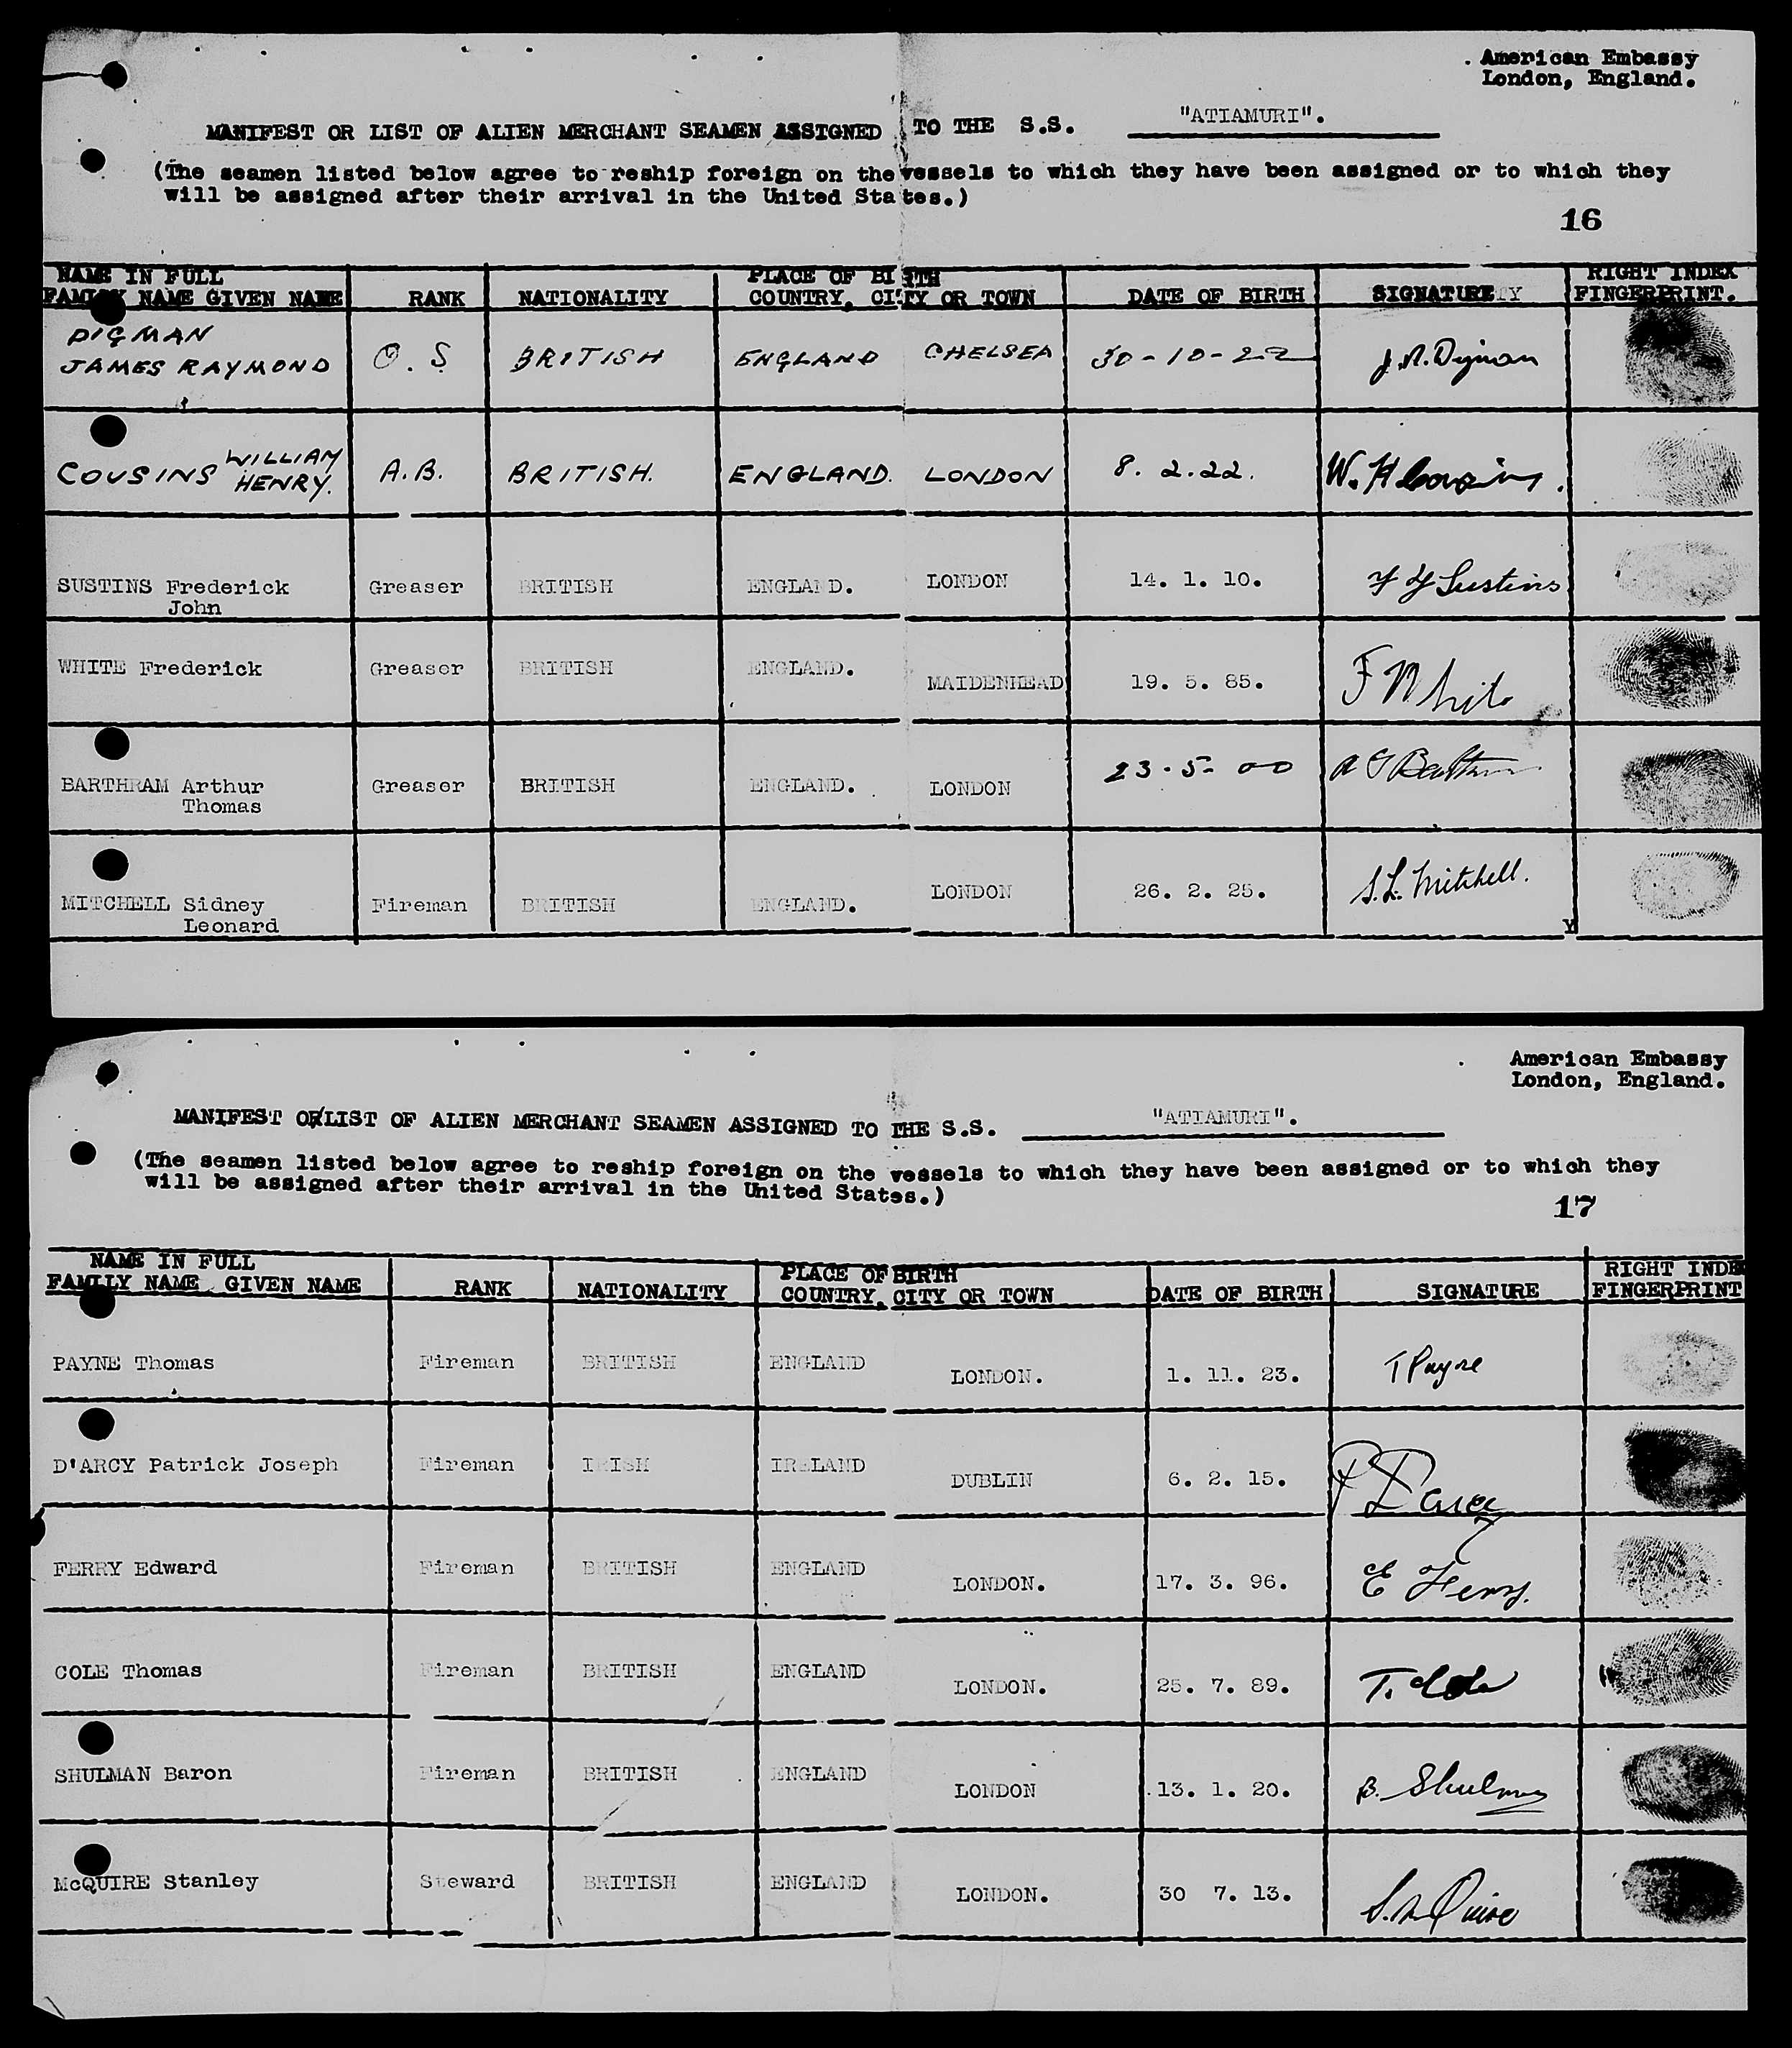 American Embassy
London, England.
MANIFEST OR LIST OF ALIEN MERCHANT SEAMEN ASSIGNED TO THE S.S. "ATIAMURI".
(The seamen listed below agree to reship foreign on the vessels to which they have been assigned or to which they
will be assigned after their arrival in the United States.)
16
NAME IN FULL PLACE OF BIRTH RIGHT INDEX
FAMILY NAME GIVEN NAME RANK NATIONALITY COUNTRY, CITY OR TOWN DATE OF BIRTH SIGNATURE FINGERPRINT.
DIGMAN
JAMES RAYMOND O.S BRITISH ENGLAND CHELSEA 30-10-22 J.R. Digman
COUSINS WILLIAM HENRY. A.B. BRITISH. ENGLAND. LONDON 8. 2.22. W. H Cousins.
SUSTINS Frederick Greaser BRITISH ENGLAND. LONDON 14. 1. 10. F J Sustins
John
WHITE Frederick Greaser BRITISH ENGLAND. MAIDENHEAD 19. 5. 85. F White
BARTHRAM Arthur Greaser BRITISH ENGLAND. LONDON 23-5-00 A T Barthram
Thomas
MITCHELL Sidney Fireman BRITISH ENGLAND. LONDON 26. 2. 25. S.L. Mitchell.
Leonard
American Embassy
London, England.
MANIFEST OR LIST OF ALIEN MERCHANT SEAMEN ASSIGNED TO THE S.S. "ATIAMURI".
(The seamen listed below agree to reship foreign on the vessels to which they have been assigned or to which they
will be assigned after their arrival in the United States.)
17
NAME IN FULL PLACE OF BIRTH RIGHT INDE
FAMILY NAME GIVEN NAME RANK NATIONALITY COUNTRY, CITY OR TOWN DATE OF BIRTH SIGNATURE FINGERPRINT
PAYNE Thomas Fireman BRITISH ENGLAND LONDON. 1. 11. 23. T Payne
D'ARCY Patrick Joseph Fireman IRISH IRELAND DUBLIN 6. 2. 15. P Darcy
FERRY Edward Fireman BRITISH ENGLAND LONDON. 17. 3. 96. E Ferry.
COLE Thomas Fireman BRITISH ENGLAND LONDON. 25. 7. 89. T. Cole
SHULMAN Baron Fireman BRITISH ENGLAND LONDON 13. 1. 20. B. Shulman
McQUIRE Stanley Steward BRITISH ENGLAND LONDON. 30 7. 13. S. Mc Quire